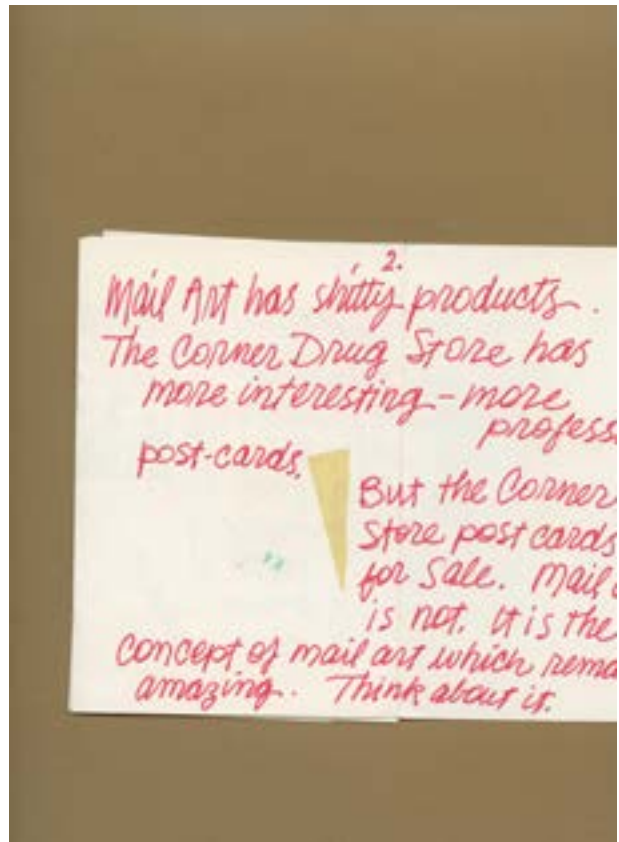 2.
Mail Art has shitty products.
The Corner Drug Store has
more interesting - more
profess
post-cards.
But the Corner
Store post cards
for sale. Mail
is not. It is the
concept of mail art which rema
amazing. Think about it.